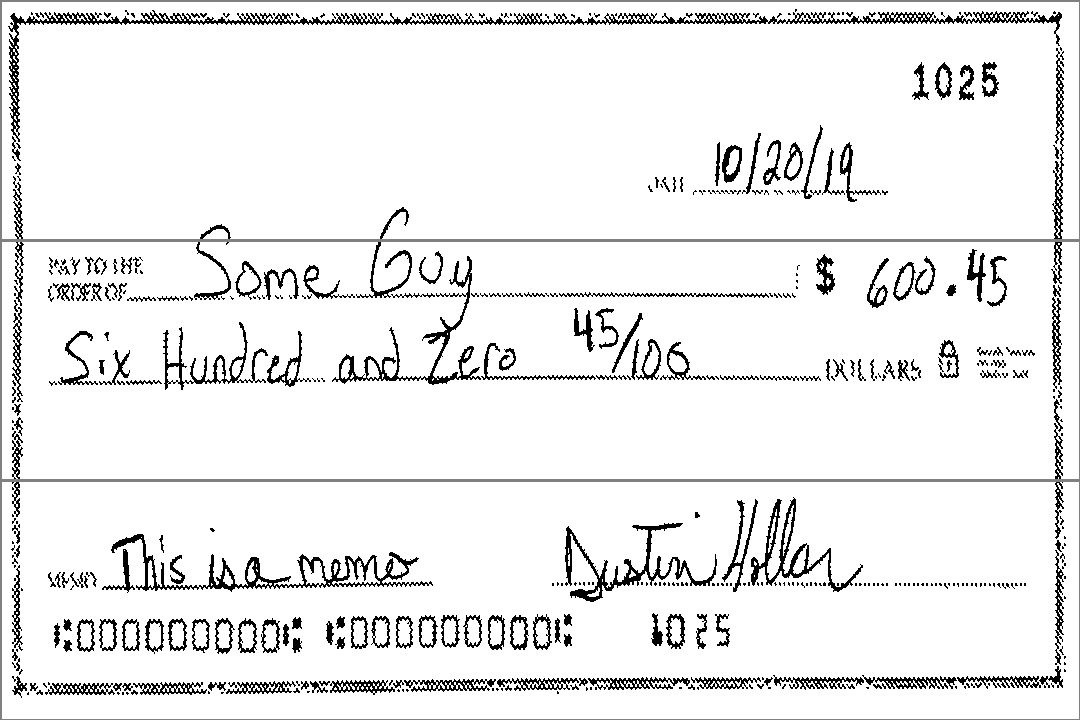 1025
DATE 10/20/19
PAY TO THE ORDER OF Some Guy $ 600.45
Six Hundred and Zero 45/100 DOLLARS
MEMO This is a memo Dustin Hollar
⑆000000000⑆ ⑆000000000⑆ 1025